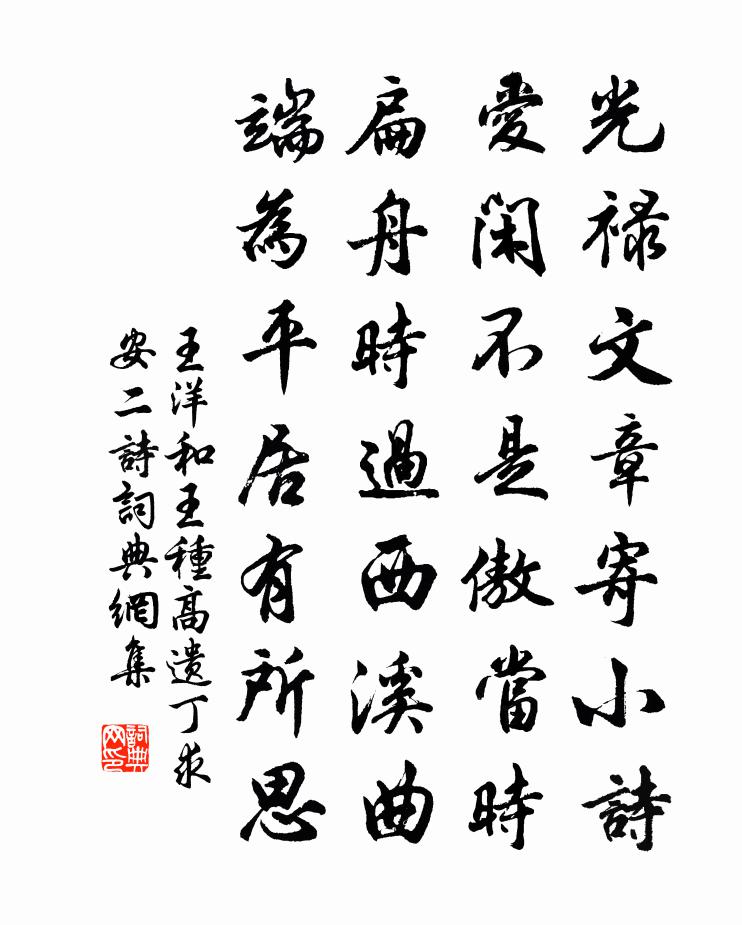 光祿文章寄小詩
愛閑不是傲當時
扁舟時過西溪曲
端為平居有所思
王洋和王種高遺丁求
安二詩詞典網集
詞典网印